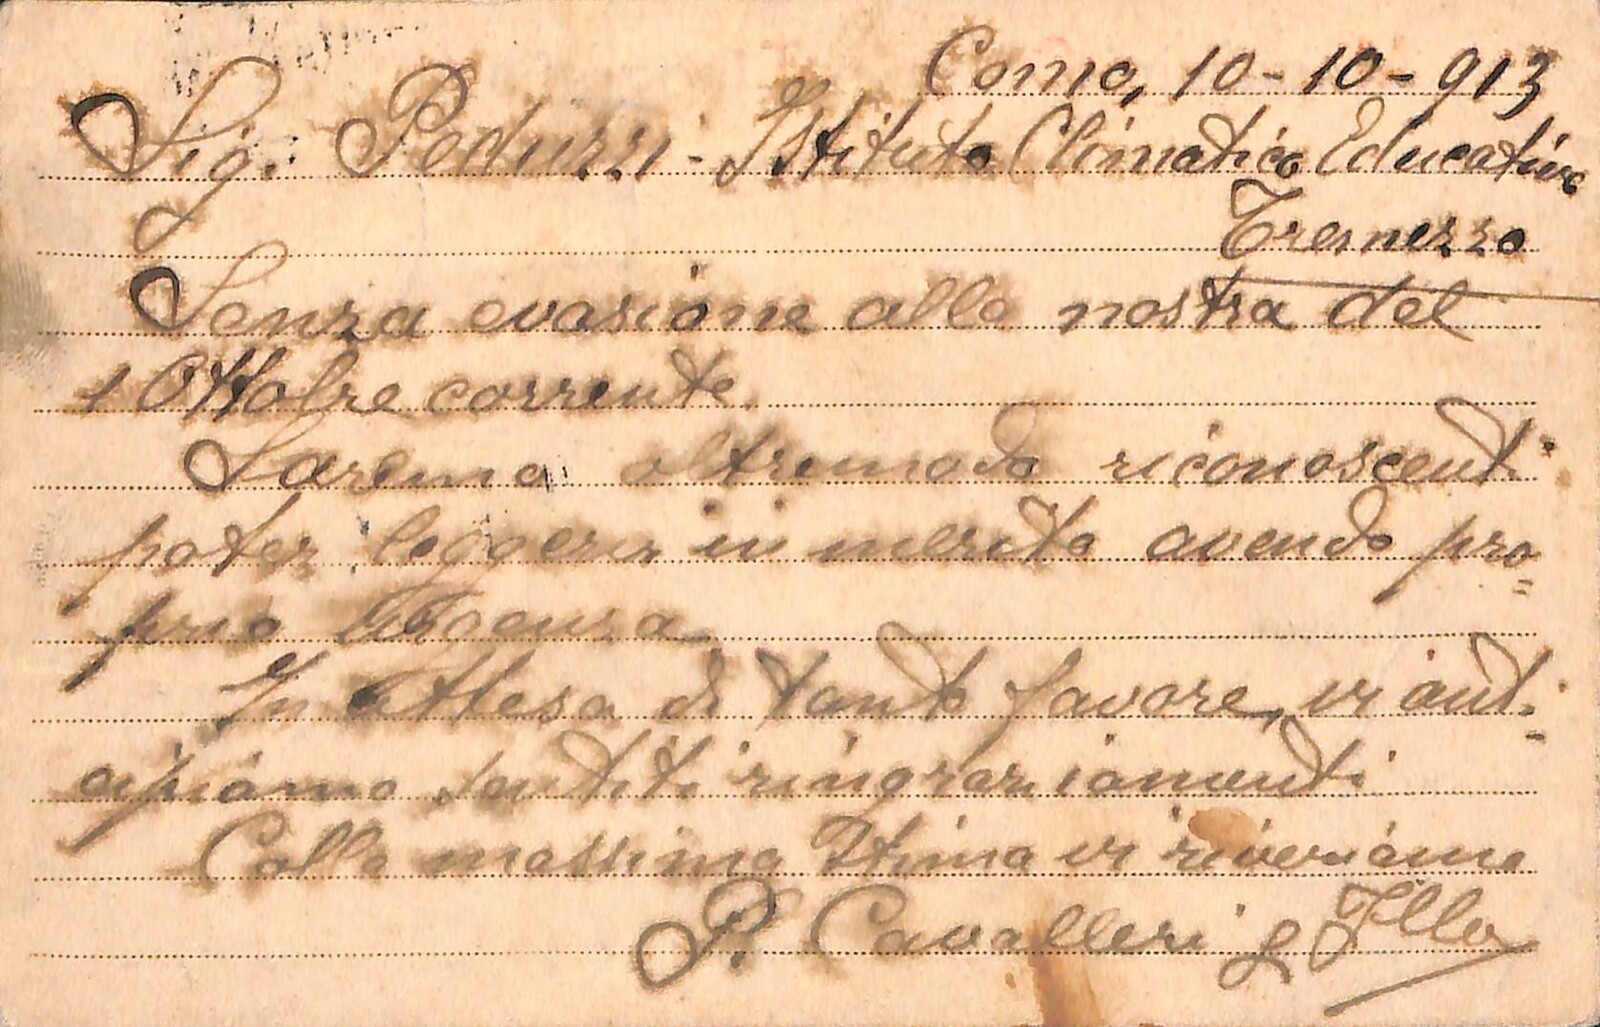 Como, 10-10-913
Sig. Peduzzi - Istituto Climatico Educativo
Tremezzo
Senza evasione alla nostra del
1 Ottobre corrente
Saremo oltremodo riconoscenti
poter leggervi in merito avendo pro=
prio urgenza
In attesa di tanto favore, vi anti-
cipiamo sentiti ringraziamenti
Colla massima stima vi riveriamo
P. Cavalleri &